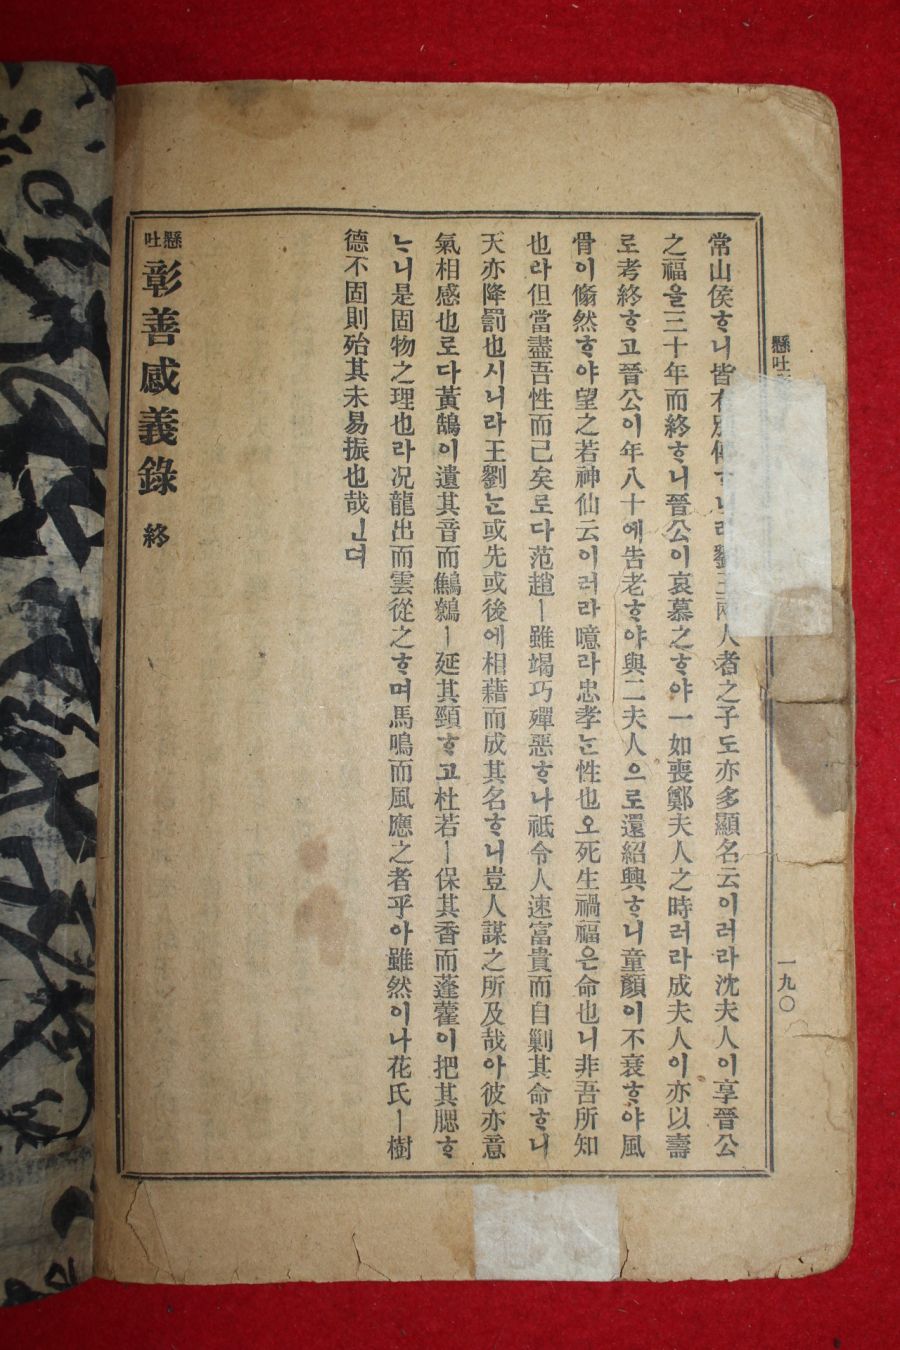 懸吐
一九〇
常山侯ᄒᆞ니皆有別傳ᄒᆞ니라劉王兩人者之子도亦多顯名云이러라沈夫人이享晉公
之福을三十年而終ᄒᆞ니晉公이哀慕之ᄒᆞ야一如喪鄭夫人之時러라成夫人이亦以壽
로考終ᄒᆞ고晉公이年八十에告老ᄒᆞ야與二夫人으로還紹興ᄒᆞ니童顏이不衰ᄒᆞ야風
骨이翛然ᄒᆞ야望之若神仙云이러라噫라忠孝ᄂᆞᆫ性也오死生禍福은命也니非吾所知
也라但當盡吾性而已矣로다范趙ㅣ雖竭巧殫惡ᄒᆞ나祗令人速富貴而自剿其命ᄒᆞ니
天亦降罰也시니라王劉ᄂᆞᆫ或先或後에相藉而成其名ᄒᆞ니豈人謀之所及哉아彼亦意
氣相感也로다黃鵠이遺其音而鷦鷯ㅣ延其頸ᄒᆞ고杜若ㅣ保其香而蓬藿이把其腮ᄒᆞ
ᄂᆞ니是固物之理也라况龍出而雲從之ᄒᆞ며馬鳴而風應之者乎아雖然이나花氏ㅣ樹
德不固則殆其未易振也哉ᅟᅵᆫ뎌
懸吐 彰善感義錄 終